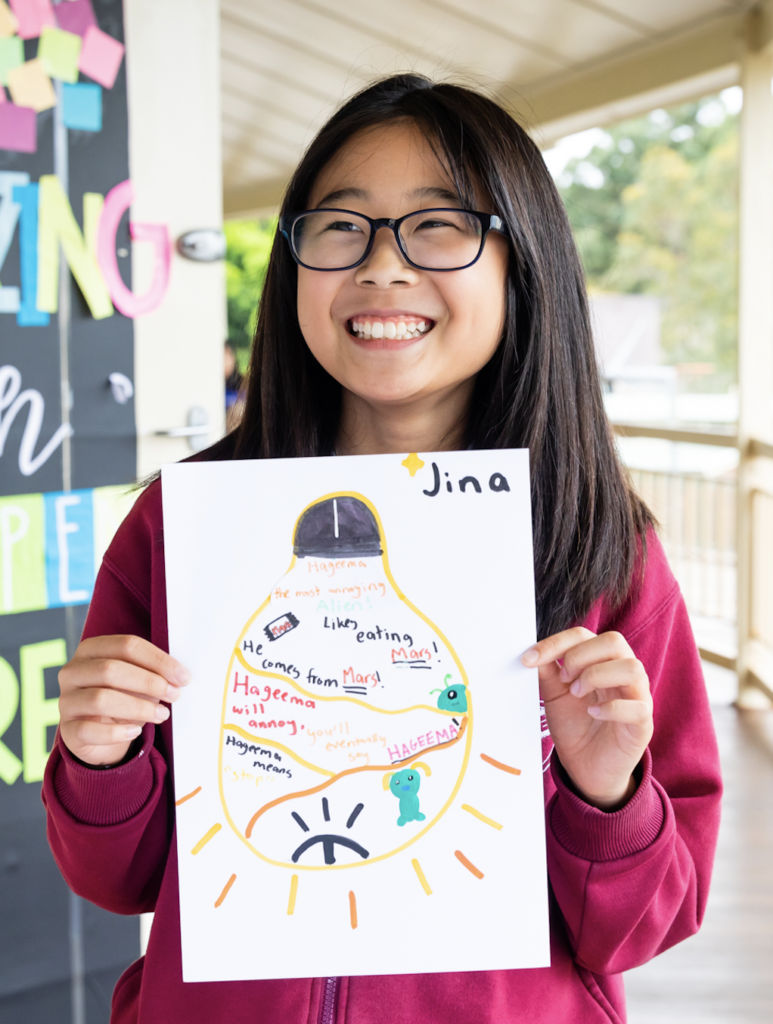 ING
PE
RE
Jina
Hageema
the most annoying
Alien!
Mars
Likes
eating
Mars!
He
comes from Mars!
Hageema
will
annoy,
you'll
eventually
say
HAGEEMA
Hageema
means
"stop"